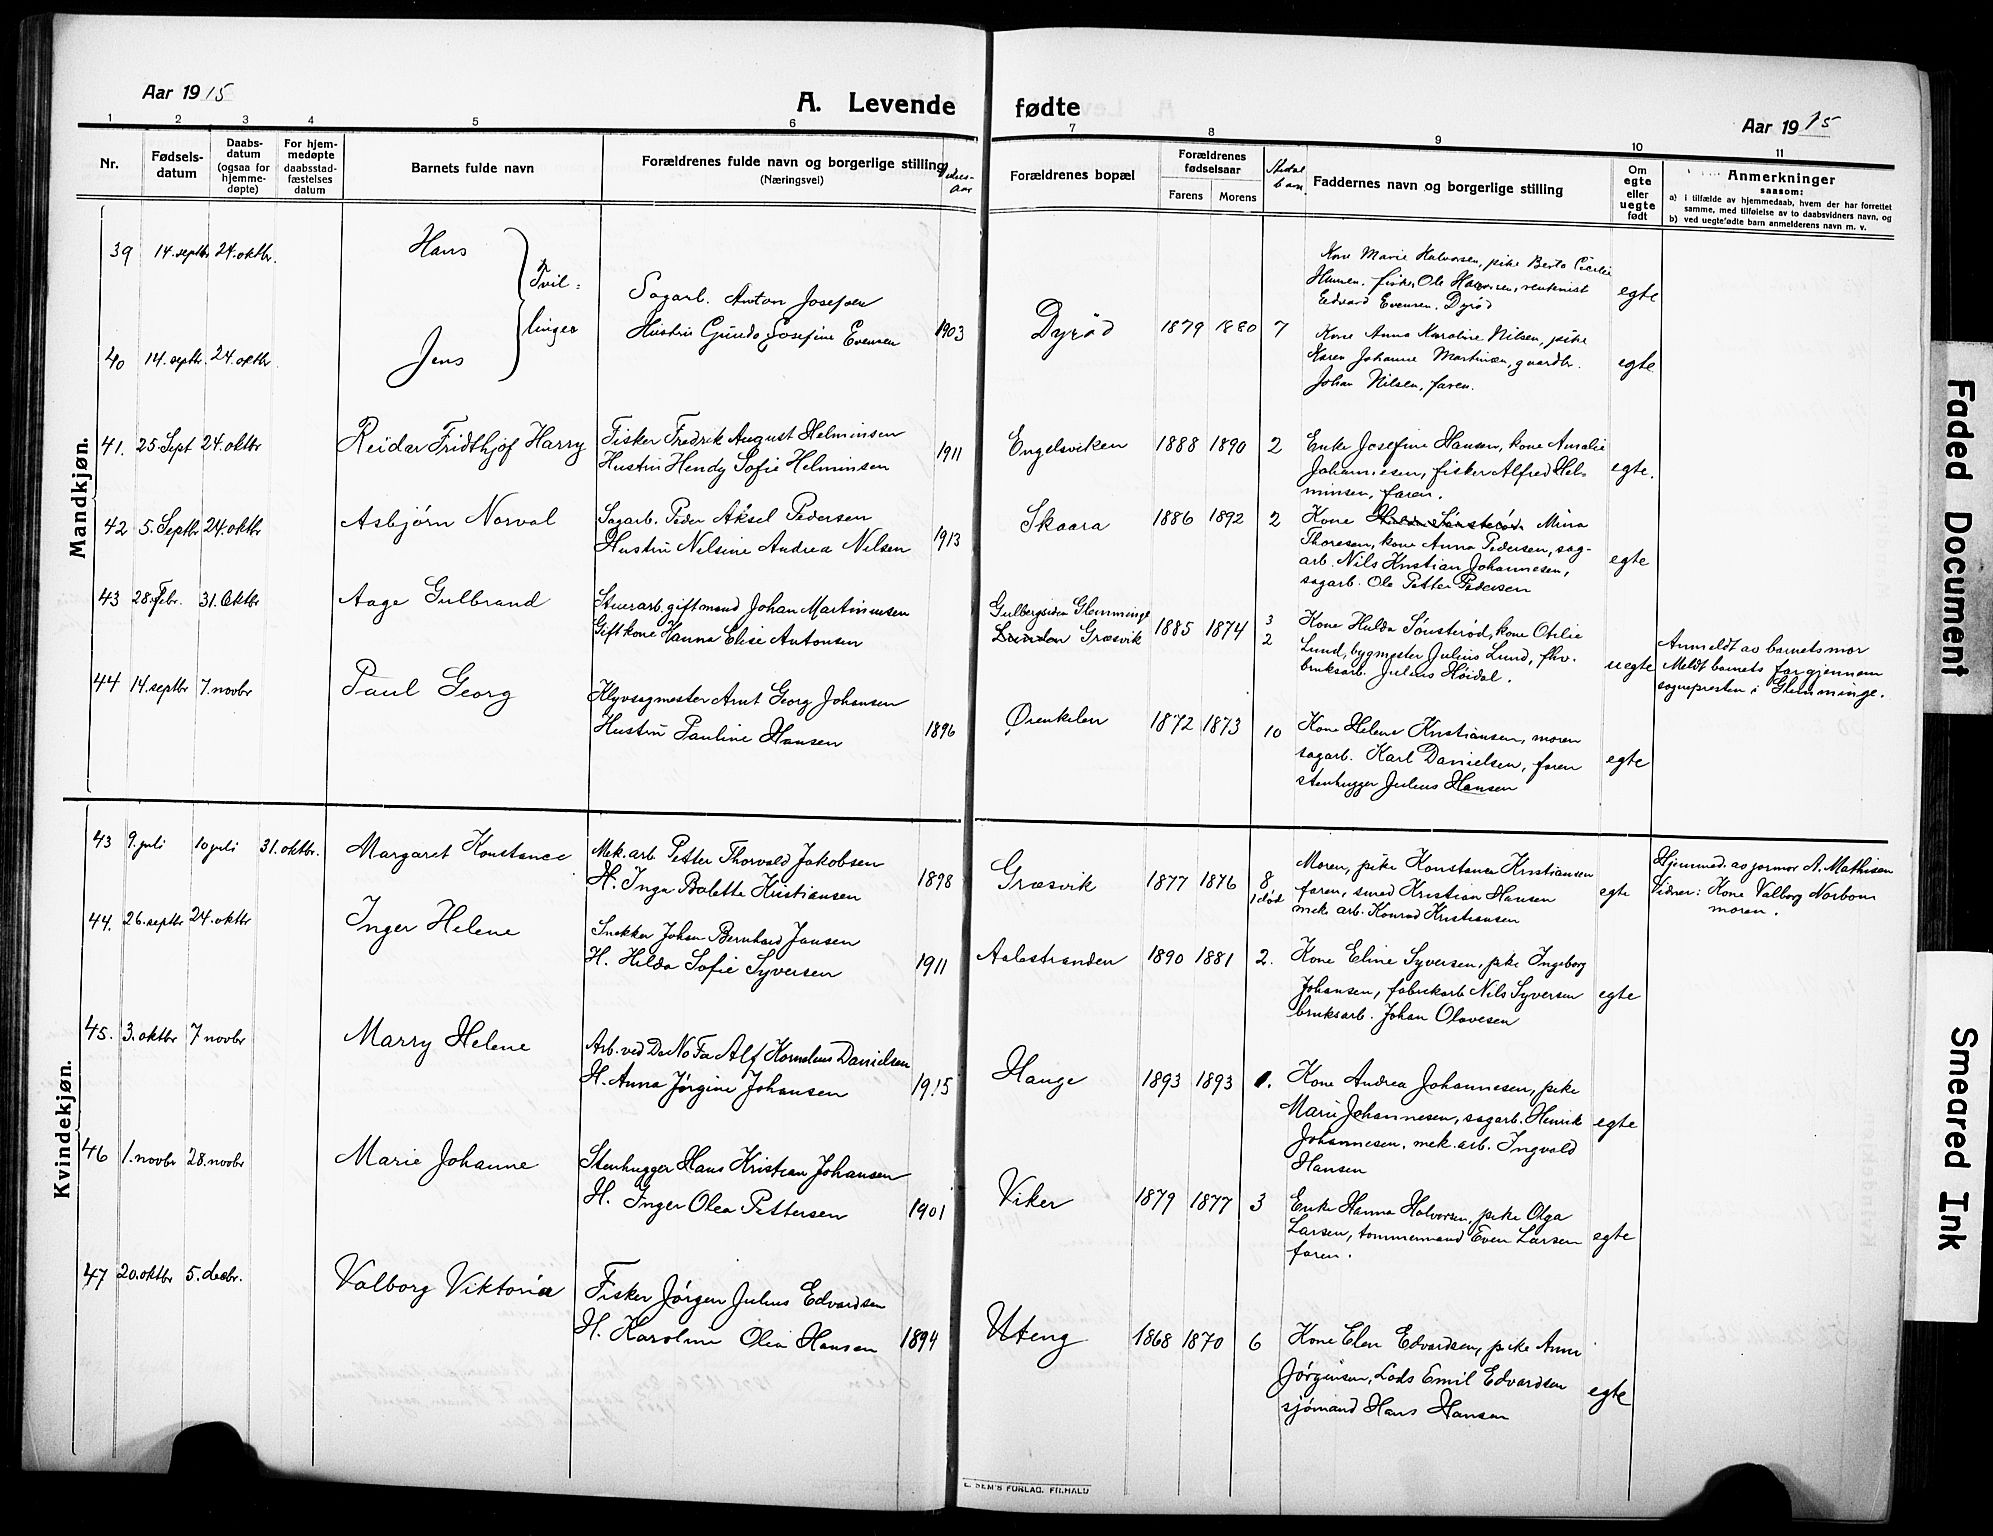 Aar 1915
A. Levende
fødte
Aar 1915
1 2 3 4 5 6 7 8 9 10 11
Nr.
Fødsels-
datum
Daabs-
datum
(ogsaa for
hjemme-
døpte)
For hjem-
medøpte
daabsstad-
fæstelses
datum
Barnets fulde navn
Forældrenes fulde navn og borgerlige stilling
(Næringsvei)
Forældrenes bopæl
Forældrenes
fødselsaar
Farens Morens
Faddernes navn og borgerlige stilling
Om
egte
eller
uegte
født
Anmerkninger
saasom:
a) i tilfælde av hjemmedaab, hvem der har forrettet
samme, med tilføielse av to daabsvidners navn, og
b) ved uegtefødte barn anmelderens navn m. v.
Mandkjøn.
39 14. septbr. 24. oktbr. Hans
Tvil-
linger
Sagarb. Anton Josefsen
Hustru Gunda Josefine Evensen 1903
Dyrød 1879 1880 7
Kone Marie Halvorsen, pike Berta Cecilie
Hansen, fisker Ole Halvorsen, rentenist
Edvard Evensen. Dyrød
egte
40 14. septbr. 24. oktbr. Jens
Kone Anna Karoline Nilsen, pike
Karen Johanne Martinsen, gaardbr.
Johan Nilsen, faren.
egte.
41. 25. Sept 24. oktbr Reidar Fridthjof Harry
Fisker Fredrik August Helminsen
Hustru Hendy Sofie Helminsen 1911
Engelsviken 1888 1890 2
Enke Josefine Hansen, kone Amalie
Johannesen, fisker Alfred Hel-
minsen, faren.
egte.
42 5. Septbr 24. oktbr Asbjørn Norval
Sagarb. Peder Aksel Pedersen
Hustru Nilsine Andrea Nilsen 1913
Skaara 1886 1892 2
Kone Hulda Sønsterød. Mina
Thoresen, kone Anna Pedersen, sag-
arb. Nils Kristian Johannesen,
sagarb. Ole Petter Pedersen
egte
43 28. Febr. 31. Oktbr Aage Gulbrand
Stuerarb. gift mand Johan Martinusen
Gift kone Hanna Elise Antonsen
Gulbergsiden Glemminge
Lunden Græsvik 1885 1874 3
2
Kone Hulda Sønsterød, kone Otilie
Lund, bygmester Julius Lund, fhv.
bruksarb. Julius Høidal.
uegte
Anmeldt av barnets mor
Meldt barnets far gjennem
sognepresten i Glemminge.
44 14. septbr 7. novbr Paul Georg
Klyvsagmester Arnt Georg Johansen
Hustru Pauline Hansen 1896
Ørenkilen 1872 1873 10
Kone Helene Kristiansen, moren
sagarb. Karl Danielsen, faren
stenhugger Julius Hansen
egte
Kvindekjøn.
43 9. juli 10 juli 31. oktbr. Margaret Konstance
Mek. arb. Petter Thorvald Jakobsen
H. Inga Bolette Kristiansen 1898
Græsvik 1877 1876 8
1 død
Moren, pike Konstance Kristiansen
faren, smed Kristian Hansen
mek. arb. Konrad Kristiansen
egte
Hjemmed. av jormor A. Mathisen
Vidner: Kone Valborg Norbom
moren.
44. 26. septbr 24. oktbr Inger Helene
Snekker Johan Bernhard Jansen
H. Hilda Sofie Syversen 1911
Aalestranden 1890 1881 2.
Kone Eline Syversen, pike Ingeborg
Johansen, fabrikarb Nils Syversen
bruksarb. Johan Olavesen
egte
45. 3. oktbr 7 novbr Marry Helene
Arb. ved De No Fa Alf Kornelius Danielsen
H. Anna Jørgine Johansen 1915
Hauge 1893 1893 1.
Kone Andrea Johannesen, pike
Marie Johannesen, sagarb. Henrik
Johannesen, mek. arb. Ingvald
Hansen
egte
46 1. novbr 28. novbr Marie Johanne
Stenhugger Hans Kristian Johansen
H. Inger Olea Pettersen 1901
Viker 1879 1877 3
Enke Hanna Halvorsen, pike Olga
Larsen, tommermand Even Larsen
faren.
egte
47 20. oktbr 5. decbr. Valborg Viktoria
Fisker Jørgen Julius Edvardsen
H. Karoline Olia Hansen 1894
Uteng 1868 1870 6
Kone Elen Edvardsen, pike Anna
Jørgensen, Lods Emil Edvardsen
sjømand Hans Hansen
egte
E. SEM'S FORLAG. FR.HALD
Faded Document
Smeared Ink